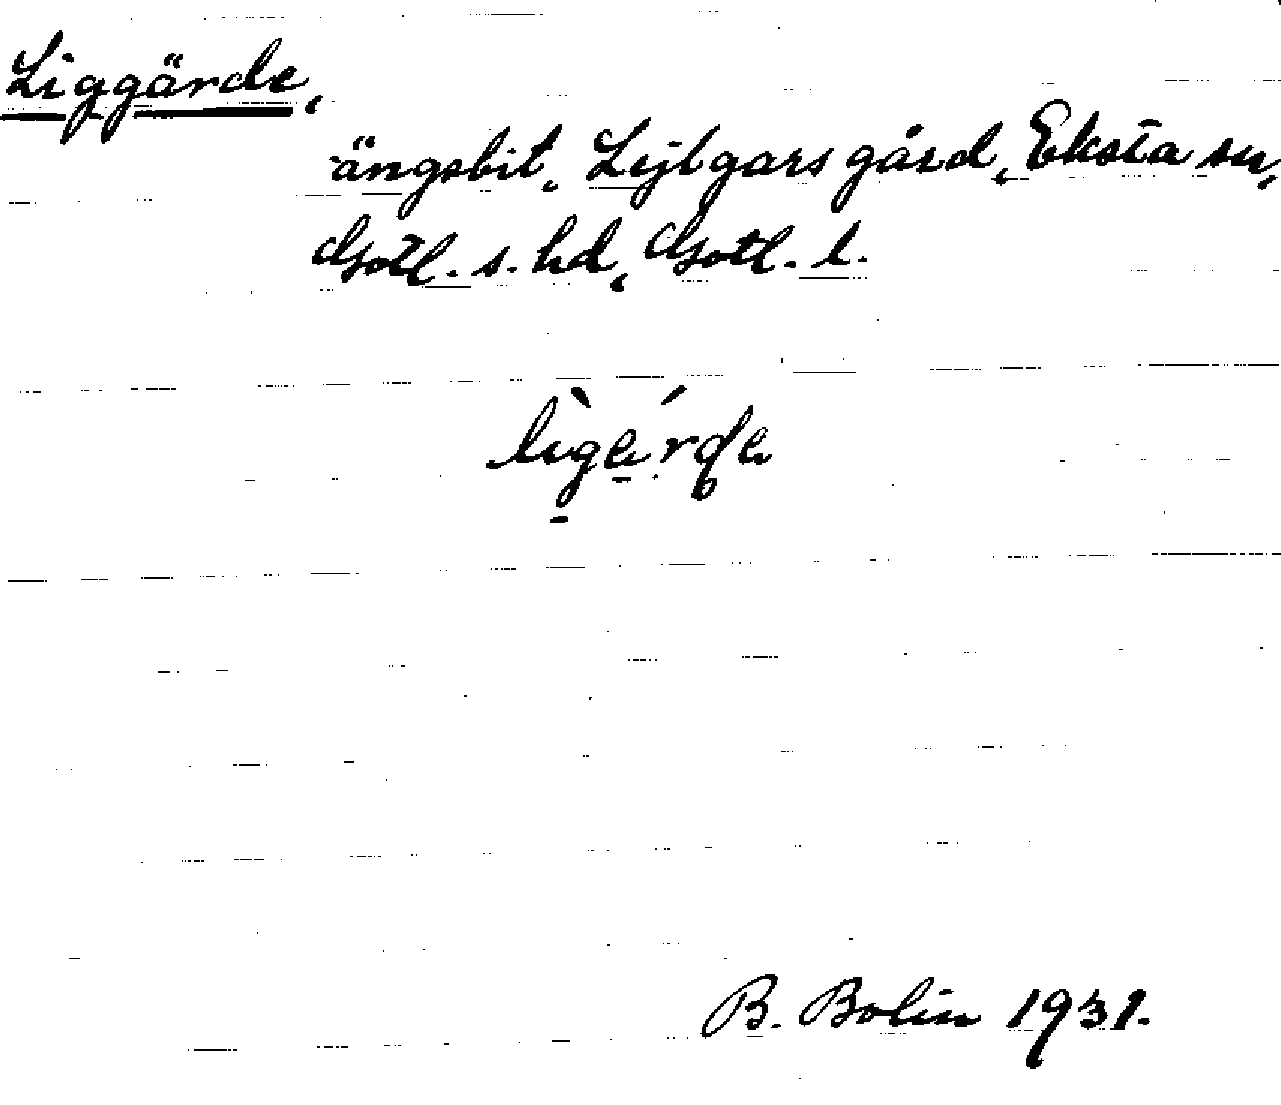 Liggärde,
ängsbit, Lejlgars gård, Eksta sn,
Gotl. s. hd, Gotl. l.
B. Bolin 1931.